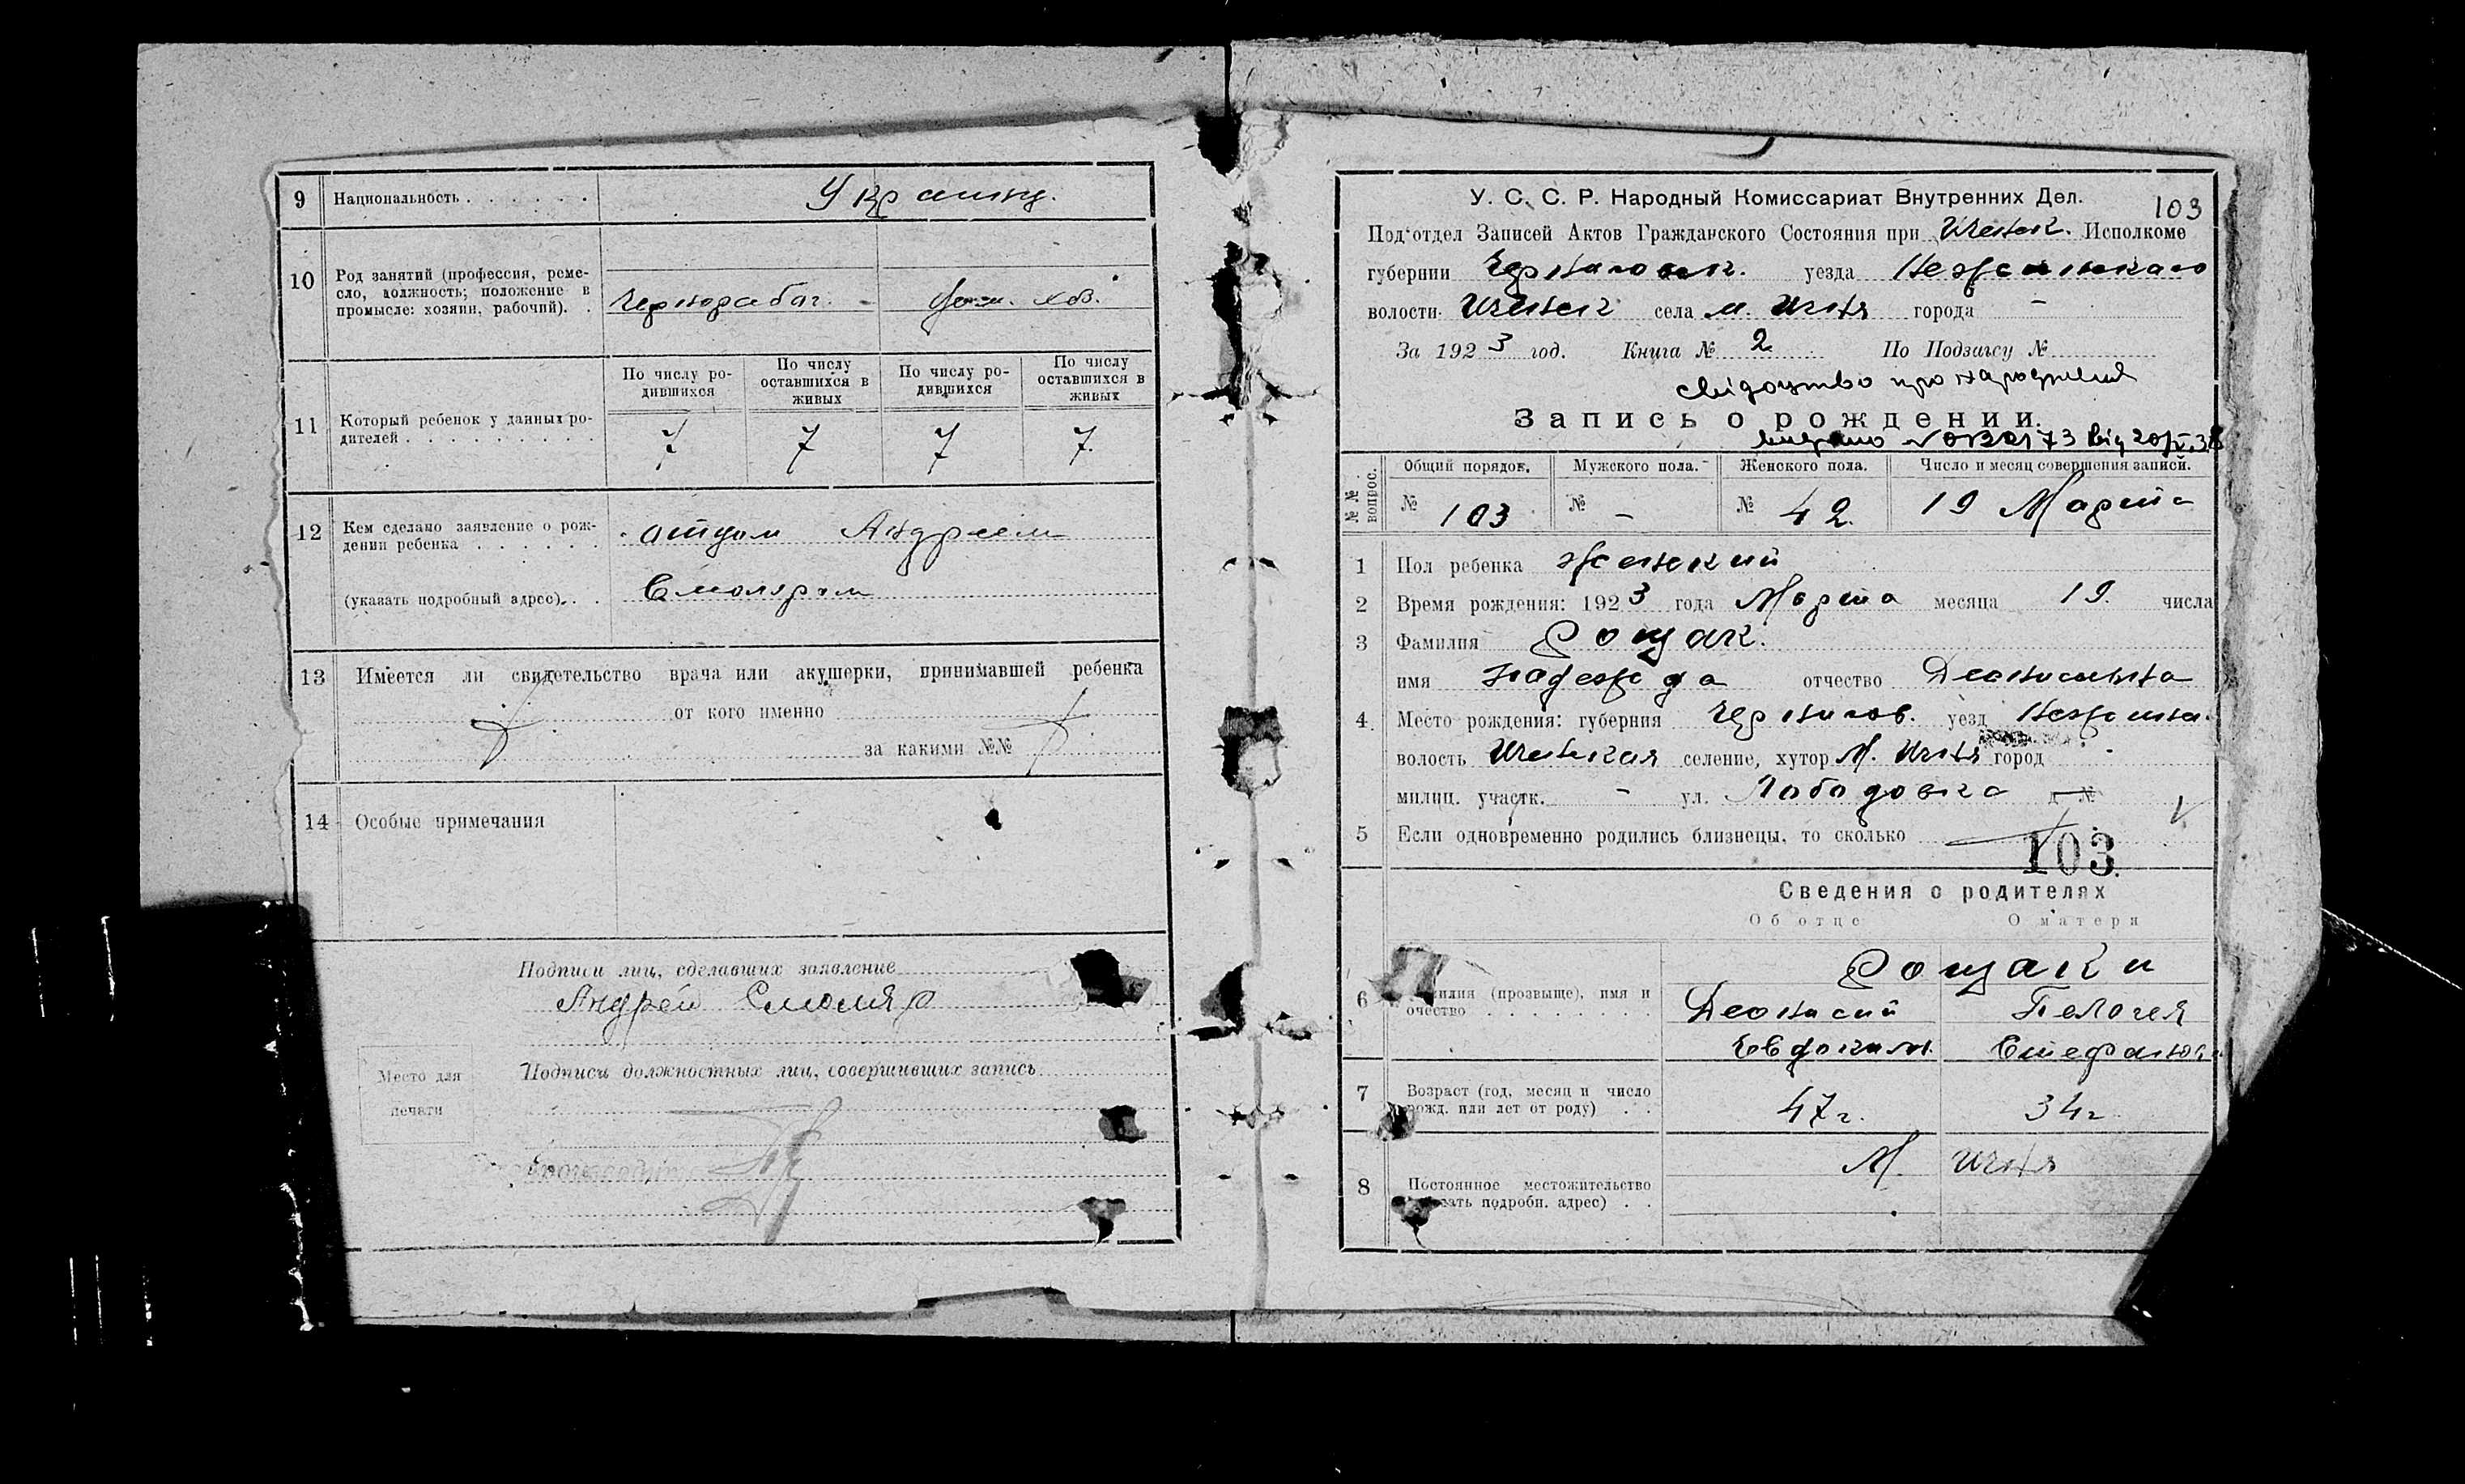 9 Национальность . . . . . . Украинц.
10 Род занятий (профессия, реме-
сло, должность; положение в
промысле: хозяин, рабочий). . Чернорабоч. - Дом. хоз.
По числу ро-
дившихся
По числу
оставшихся в
живых
По числу ро-
дившихся
По числу
оставшихся в
живых
11 Который ребенок у данных ро-
дителей . . . . . . . . . 7 7 7 7.
12 Кем сделано заявление о рож-
дении ребенка . . . . . . отцом Андреем
(указать подробный адрес). . . Смоляром
13 Имеется ли свидетельство врача или акушерки, принимавшей ребенка
от кого именно
за какими №№
14 Особые примечания
Подписи лиц, сделавших заявление
Андрей Смоляр
Место для
печати
Подписи должностных лиц, совершивших запись
У. С. С. Р. Народный Комиссариат Внутренних Дел. 103
Под'отдел Записей Актов Гражданского Состояния при Иченск. Исполкоме
губернии Черниговск. уезда Нежинского
волости Иченск села м. Ичня города -
За 1923 год. Книга № 2 По Подзагсу №
свідоцтво про народження
Запись о рождении.
видано
№ № вопрос.
Общий порядок. Мужского пола. Женского пола. Число и месяц совершения записи.
№ 103 № - № 42. 19 Марта
1 Пол ребенка женский
2 Время рождения: 1923 года Марта месяца 19. числа
3 Фамилия Рощак.
имя Надежда отчество Деонисиевна
4 Место рождения: губерния Чернигов. уезд Нежинск.
волость Иченская селение, хутор М. Ичня город -
милиц. участк. - ул. Лободовка д. №
5 Если одновременно родились близнецы, то сколько
103
Сведения о родителях
Об отце О матери
Рощаки
6 Фамилия (прозвище), имя и
отчество . . . . . . . . Деонисий Пелагея
Евдоким. Стефанов.
7 Возраст (год, месяц и число
рожд. или лет от роду) . . 47 г. 34 г
М. Ичня
8 Постоянное местожительство
(указать подробн. адрес) . .